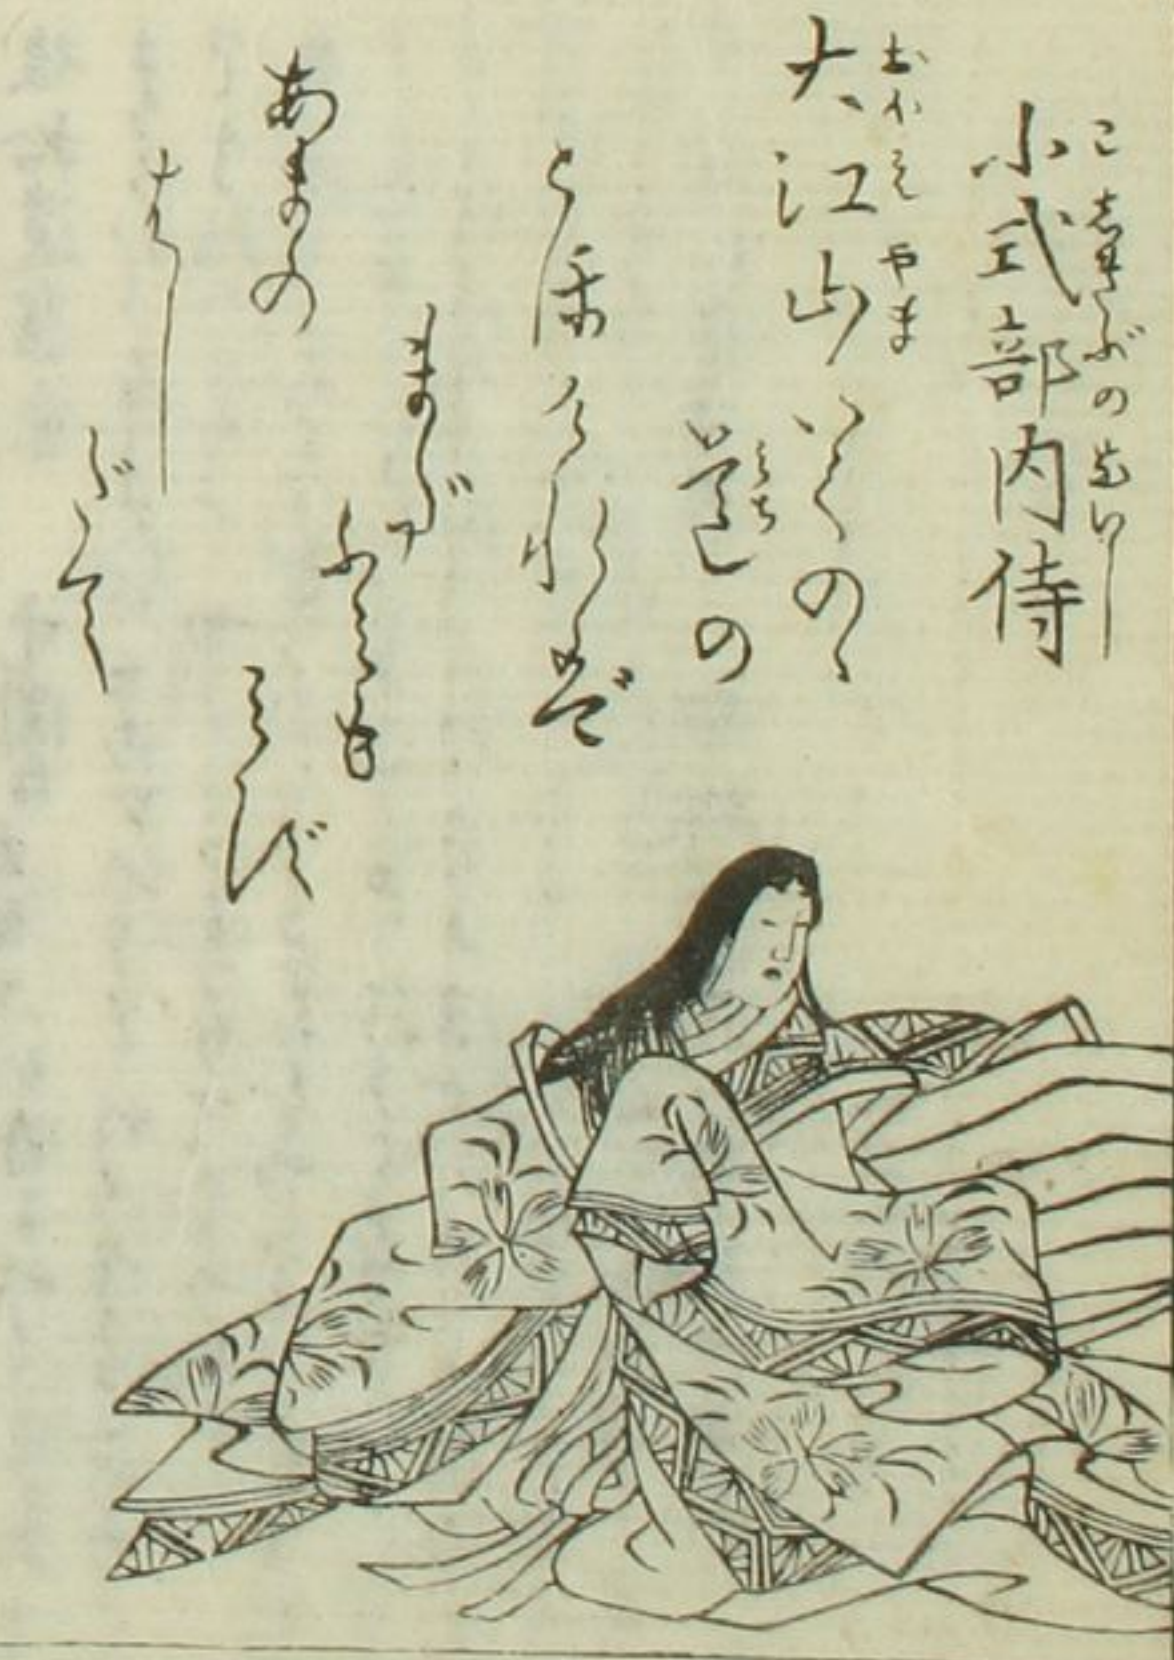 こしきぶのないし
小式部内侍
おほえやま
大江山いくのゝ
みち
道の
とほければ
まだ
ふみも
みず
あまの
はし
だて